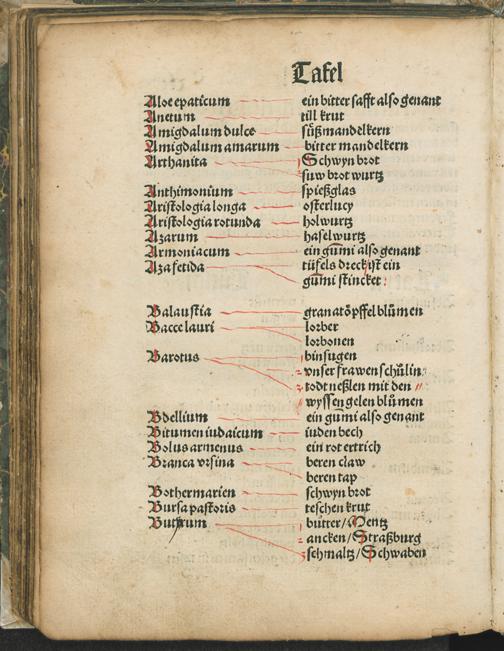 Tafel
Aloe epaticum ein bitter safft also genant
Anetum till krut
Amigdalum dulce süßmandelkern
Amigdalum amarum bitter mandelkern
Arthanita Schwyn brot
suw brot wurtz
Anthimonium spießglas
Aristologia longa osterlucy
Aristologia rotunda holwurtz
Azarum haselwurtz
Armoniacum ein gūmi also genant
Aza fetida tüfels dreck ist ein
gūmi stincket
Balaustia granatöpffel blümen
Bacce lauri lorber
lorbonen
Barotus binsugen
vnser frawen schülin
todt neßlen mit den
wyssen gelen blümen
Bdellium ein gumi also genant
Bitumen iudaicum iuden bech
Bolus armenus ein rot ertrich
Branca vrsina beren claw
beren tap
Bothermarien schwyn brot
Bursa pastoris teschen krut
Butyrum bütter/Mentz
ancken/Straßburg
schmaltz/Schwaben